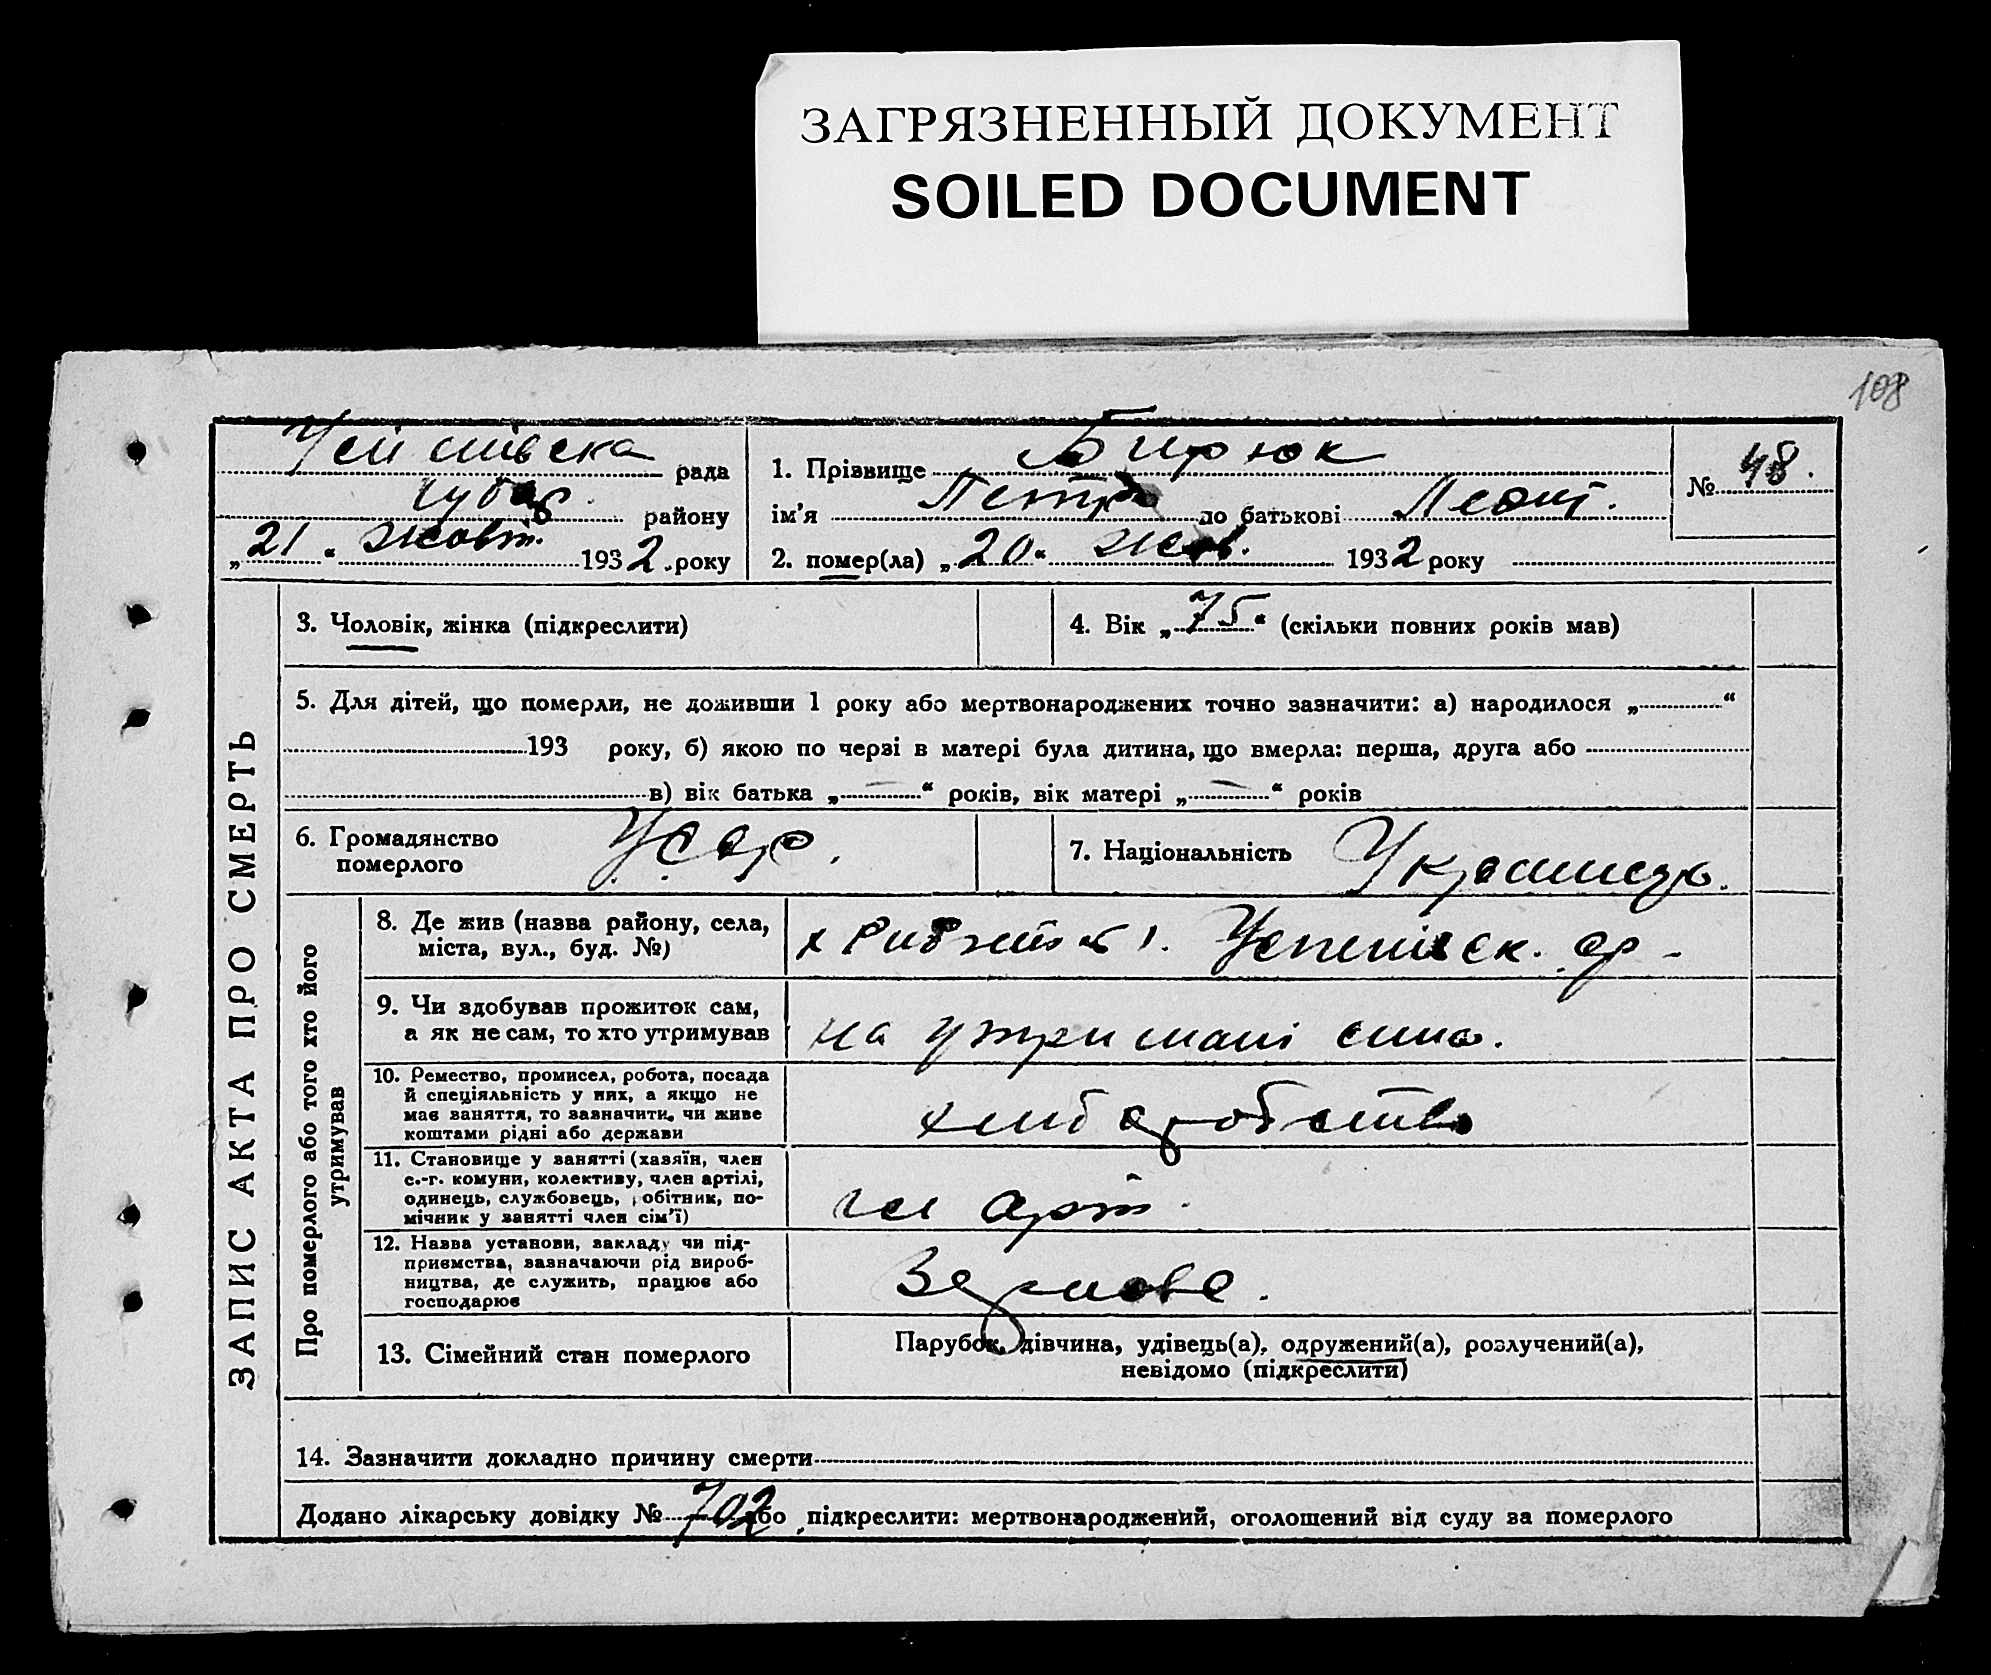 ЗАГРЯЗНЕННЫЙ ДОКУМЕНТ
SOILED DOCUMENT
108
рада
району
„21“ жовт. 1932 .року
1. Прізвище Бирюк
ім'я Петро по батькові Леонт.
2. помер(ла) „20“ жов. 1932 року
№ 48.
ЗАПИС АКТА ПРО СМЕРТЬ
3. Чоловік, жінка (підкреслити)
4. Вік „75“ (скільки повних років мав)
5. Для дітей, що померли, не доживши 1 року або мертвонароджених точно зазначити: а) народилося „ “
193 року, б) якою по черзі в матері була дитина, що вмерла: перша, друга або
в) вік батька „—“ років, вік матері „—“ років
6. Громадянство
померлого
УСОР.
7. Національність Українець.
Про померлого або того хто його
утримував
8. Де жив (назва району, села,
міста, вул., буд. №)
9. Чи здобував прожиток сам,
а як не сам, то хто утримував
на утримані сина.
10. Ремество, промисел, робота, посада
й спеціяльність у них, а якщо не
має заняття, то зазначити, чи живе
коштами рідні або держави
хліборобство
11. Становище у занятті (хазяїн, член
с.-г. комуни, колективу, член артілі,
одинець, службовець, робітник, по-
мічник у занятті член сім'ї)
чл арт.
12. Назва установи, закладу чи під-
приємства, зазначаючи рід вироб-
ництва, де служить, працює або
господарює
Зернове.
13. Сімейний стан померлого
Парубок, дівчина, удівець(а), одружений(а), розлучений(а),
невідомо (підкреслити)
14. Зазначити докладно причину смерти
Додано лікарську довідку № 702 або підкреслити: мертвонароджений, оголошений від суду за померлого